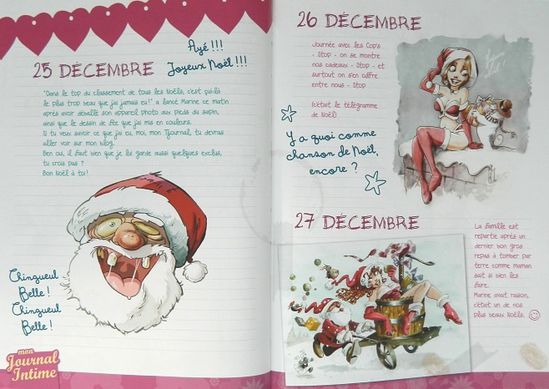 Ayé !!!
Joyeux Noël !!!
25 DÉCEMBRE
"Dans le top du classement de tous les Noëls, c'est pas là
le plus trop beau que j'ai jamais eu !" a lancé Marine ce matin
après avoir déballé son appareil photo aux pieds du sapin,
ainsi que le dessin de fée que j'ai mis en couleurs.
Si tu veux savoir ce que j'ai eu, moi, mon Tjournal, tu devras
aller voir sur mon blog !
Ben oui, il faut bien que je lui garde aussi quelques exclus,
tu crois pas ?
Bon Noël à toi !
Chingueul
Belle !
Chingueul
Belle !
mon
Journal
Intime
26 DÉCEMBRE
Journée avec les Cop's
- Stop - on se montre
nos cadeaux - Stop - et
surtout on s'en offre
entre nous - Stop
(c'était le télégramme
de Noël)
Y a quoi comme
chanson de Noël,
encore ?
27 DÉCEMBRE
La famille est
repartie après un
dernier bon gros
repas à tomber par
terre comme maman
sait si bien les
faire.
Marine avait raison,
c'était un de nos
plus beaux Noëls.